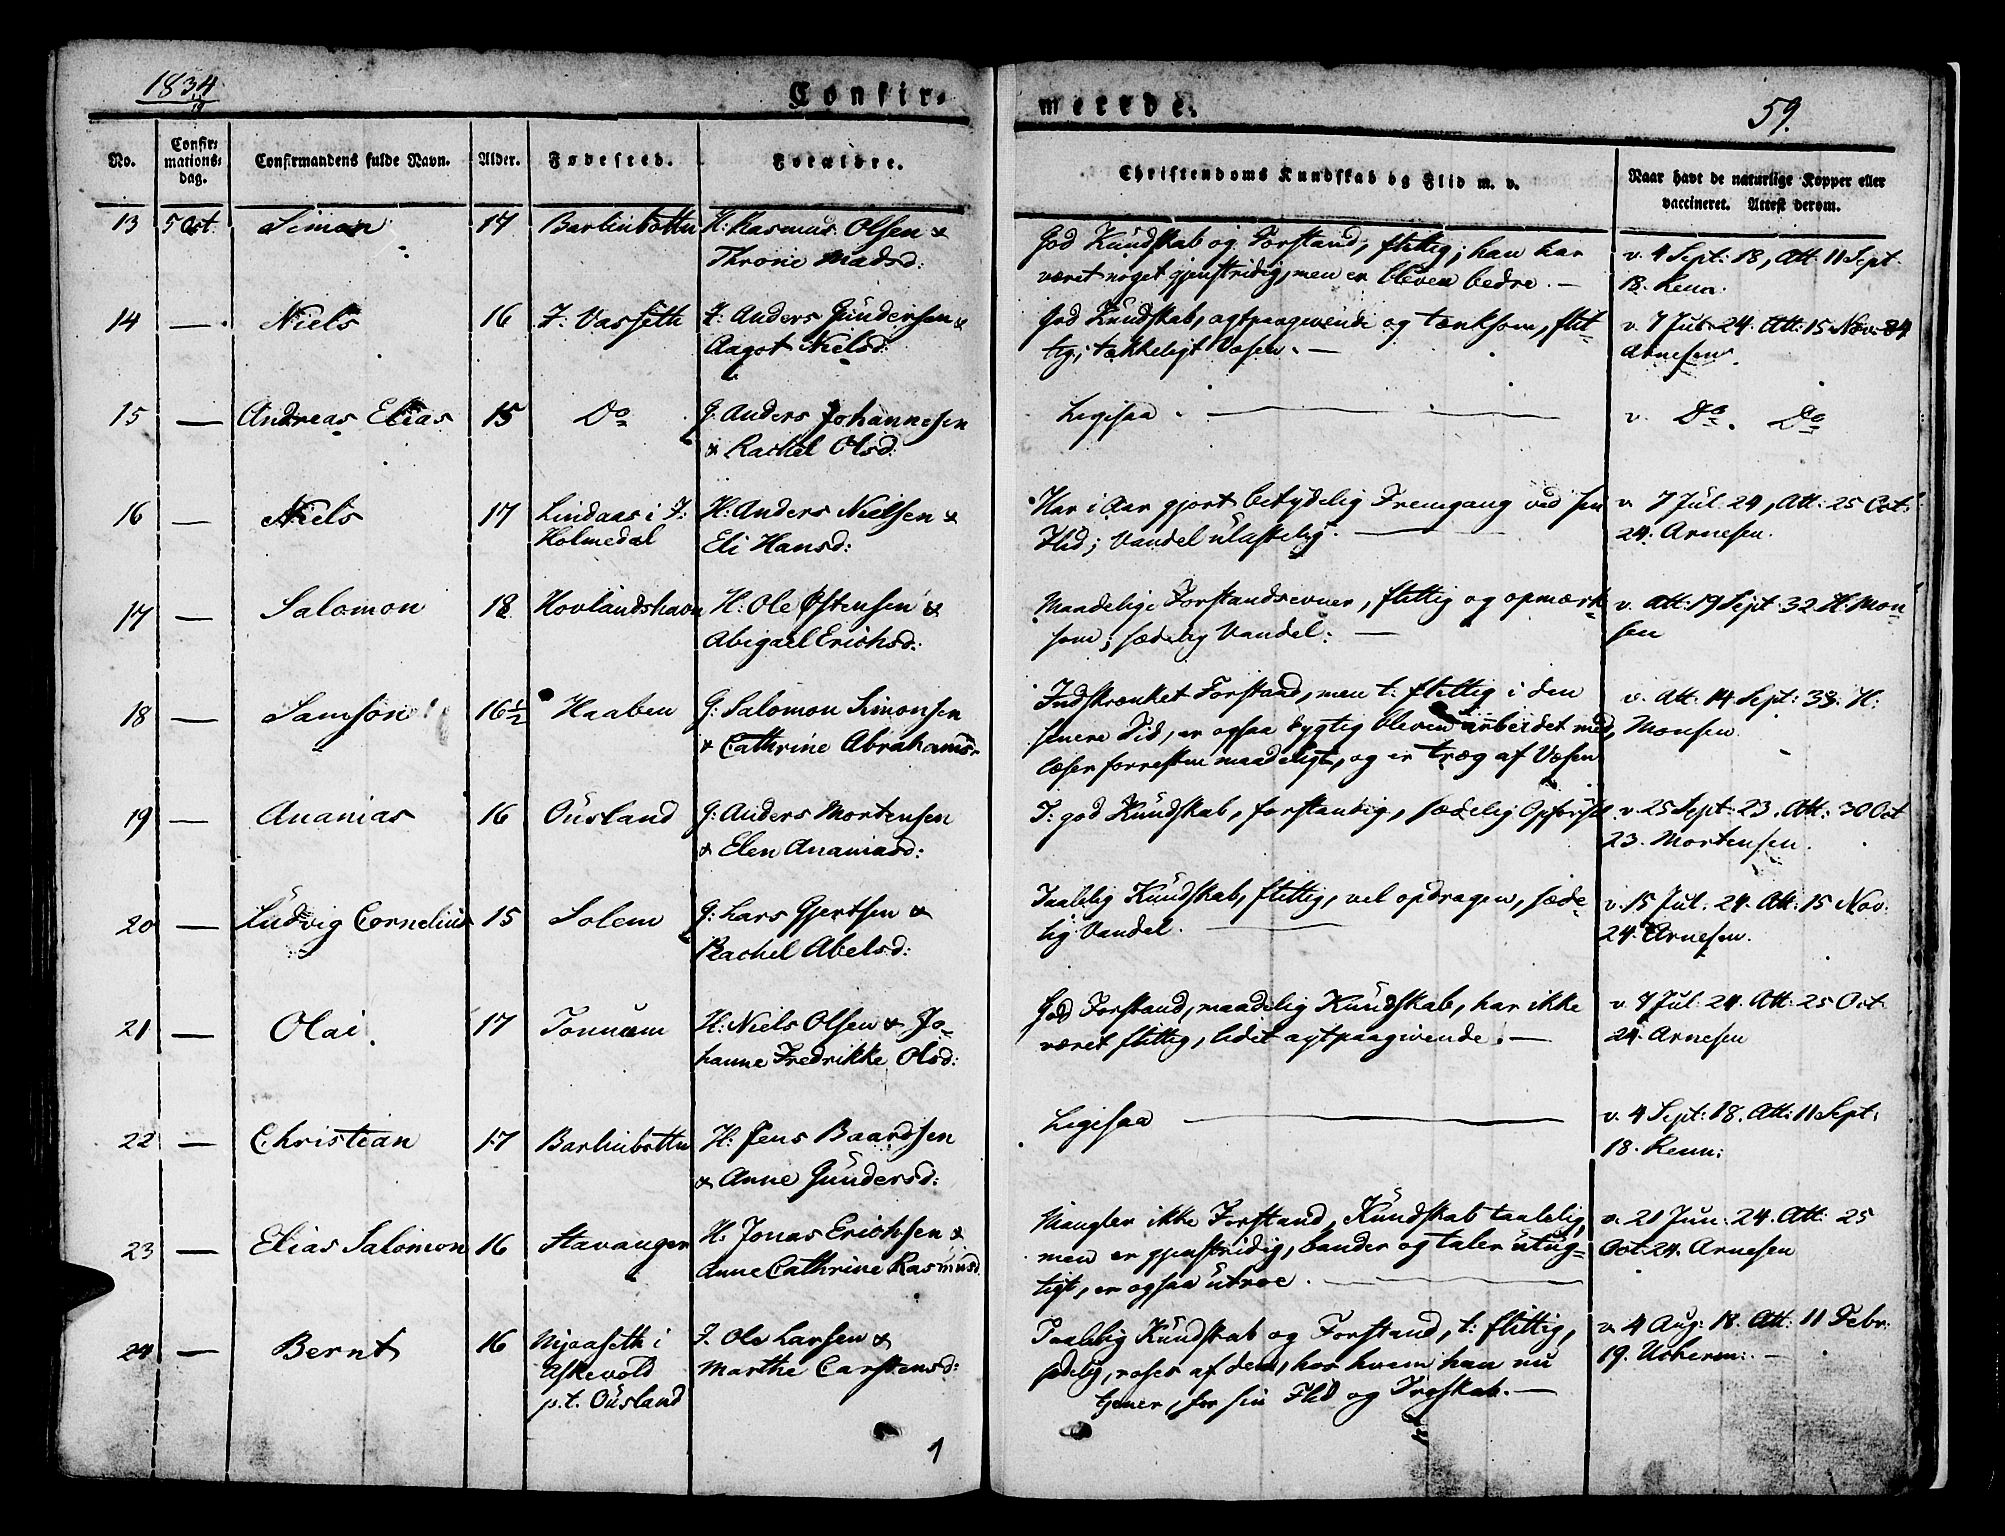 1834
Confir-
merede.
59.
No.
Confir-
mations-
dag.
Confirmandens fulde Navn.
Alder.
Fødested.
Forældre.
Christendoms Kundskab og Flid m. v.
Naar havt de naturlige Kopper eller
vaccineret. Attest derom.
13 5 Oct. Simon 17 Barlinbotten H: Rasmus Olsen &
Throne Madsd:
God Kundskab og Forstand, flittig; han har
været noget gjenstridig, men er bleven bedre. —
v. 4 Sept: 18, Att: 11 Sept:
18. Renn:
14 — Niels 16 I: Vasseth I: Anders Gundersen &
Aagot Nielsd:
God Kundskab, agtpaagivende og tænksom, flit-
tig; tækkeligt Væsen. —
v. 7 Jul: 24. Att: 15 Nov: 24
Arnesen.
15 — Andreas Elias 15 Do G: Anders Johannesen
& Rachel Olsd:
Ligesaa —
v. Do. Do
16 — Niels 17 Lindaas i I:
Holmedal
H: Anders Nielsen &
Eli Hansd:
Har i Aar gjort betydelig Fremgang ved sin
Flid; Vandel ulastelig. —
v. 7 Jul: 24, Att: 25 Oct:
24. Arnesen.
17 — Salomon 18 Hovlandshavn H: Ole Østensen &
Abigael Erichsd:
Maadelige Forstandsevner, flittig og opmærk-
som; sædelig Vandel. —
v. Att: 19 Sept: 32 H. Mon-
sen
18 — Samson 16½ Haaben G: Salomon Simonsen
& Cathrine Abrahams-
Indskrænket Forstand, men t: flittig i den
senere Tid, er ogsaa dygtig bleven arbeidet med,
læser forresten maadeligt, og er træg af Væsen
v. Att: 14 Sept: 33. H:
Monsen
19 — Ananias 16 Ousland G: Anders Mortensen
& Elen Ananiasd:
T: god Kundskab, forstandig, sædelig Opførsel
v. 25 Sept: 23. Att: 30 Oct
23. Mortensen.
20 — Ludvig Cornelius 15 Solem G: Lars Gjertsen &
Rachel Abelsd:
Taalelig Kundskab, flittig, vel opdragen, sæde-
lig Vandel. —
v. 15 Jul: 24. Att: 15 Nov:
24. Arnesen.
21 — Olai 17 Tonnum H: Niels Olsen & Jo-
hanne Fredrikke Olsd:
God Forstand, maadelig Kundskab, har ikke
været flittig, lidet agtpaagivende. —
v. 7 Jul: 24. Att: 25 Oct:
24. Arnesen
22 — Christian 17 Barlinbotten H: Jens Baardsen
& Anne Gundersd:
Ligesaa —
v. 4 Sept: 18. Att: 11 Sept:
18. Renn:
23 — Elias Salomon 16 Stavanger H. Jonas Erichsen &
Anne Cathrine Rasmusd
Mangler ikke Forstand, Kundskab taalelig,
men er gjenstridig, bander og taler utug-
tigt, er ogsaa utroe. —
v. 21 Jun: 24. Att: 25
Oct: 24. Arnesen
24 — Bernt 16 Mjaaseth i
Askevold
p.t. Ousland
I. Ole Larsen &
Marthe Carstensd:
Taalelig Kundskab og Forstand, t: flittig,
sædelig, roses af dem, hos hvem han nu
tjener, for sin Flid og Troskab. —
v. 4 Aug: 18. Att: 11 Febr:
19. Ucherm: —
1